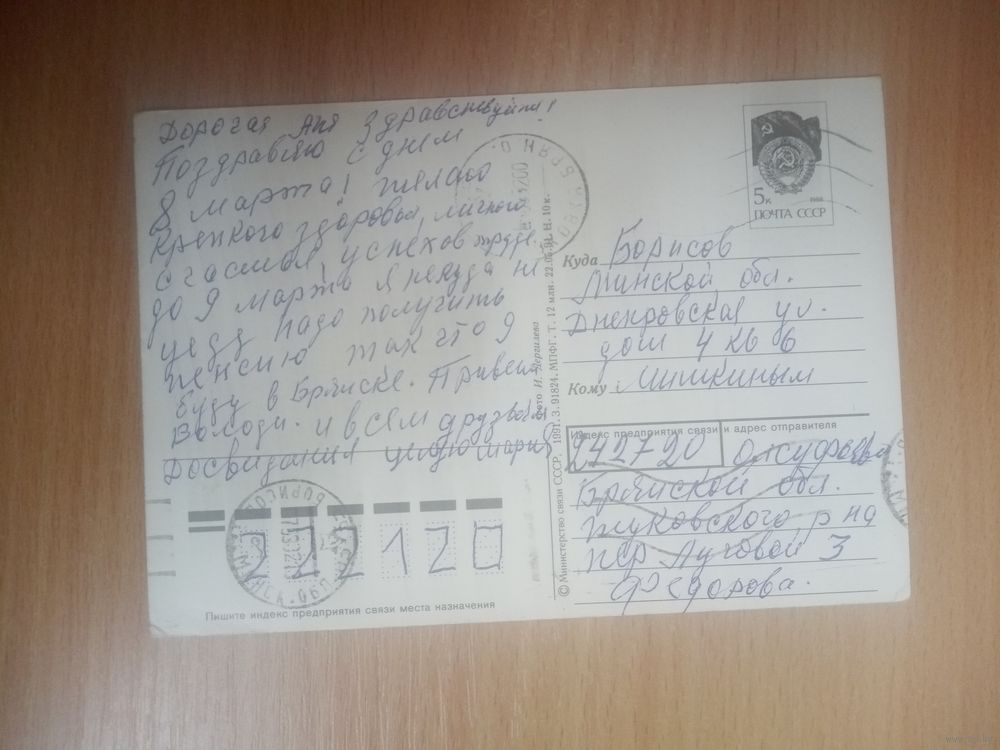 Дорогая Аня Здравствуйти!
Поздравляю С днем
8 марта! желаю
крепкого здоровья, личного
счастья, успехов труде.
до 9 марта я некуда не
уеду надо получить
пенсию так что я
буду в Брянске. Привет
Володи. и всем друзьям
Досвидания целую Мария
Пишите индекс предприятия связи места назначения
222120
БОРИСОВ
МИНСК. ОБЛ.
© Министерство связи СССР, 1991. З. 91824. МПФГ. Т. 12 млн. 22.05.91. Ц. 10 к.
Фото И. Дергилева
БРЯНО
5к 1988
ПОЧТА СССР
Куда Борисов
Минской обл.
Днепровская ул.
дом 4 кв 6
Кому Мишкиным
Индекс предприятия связи и адрес отправителя
242720
Брянской обл.
Жуковского р на
пер Луговой 3
Федорова.